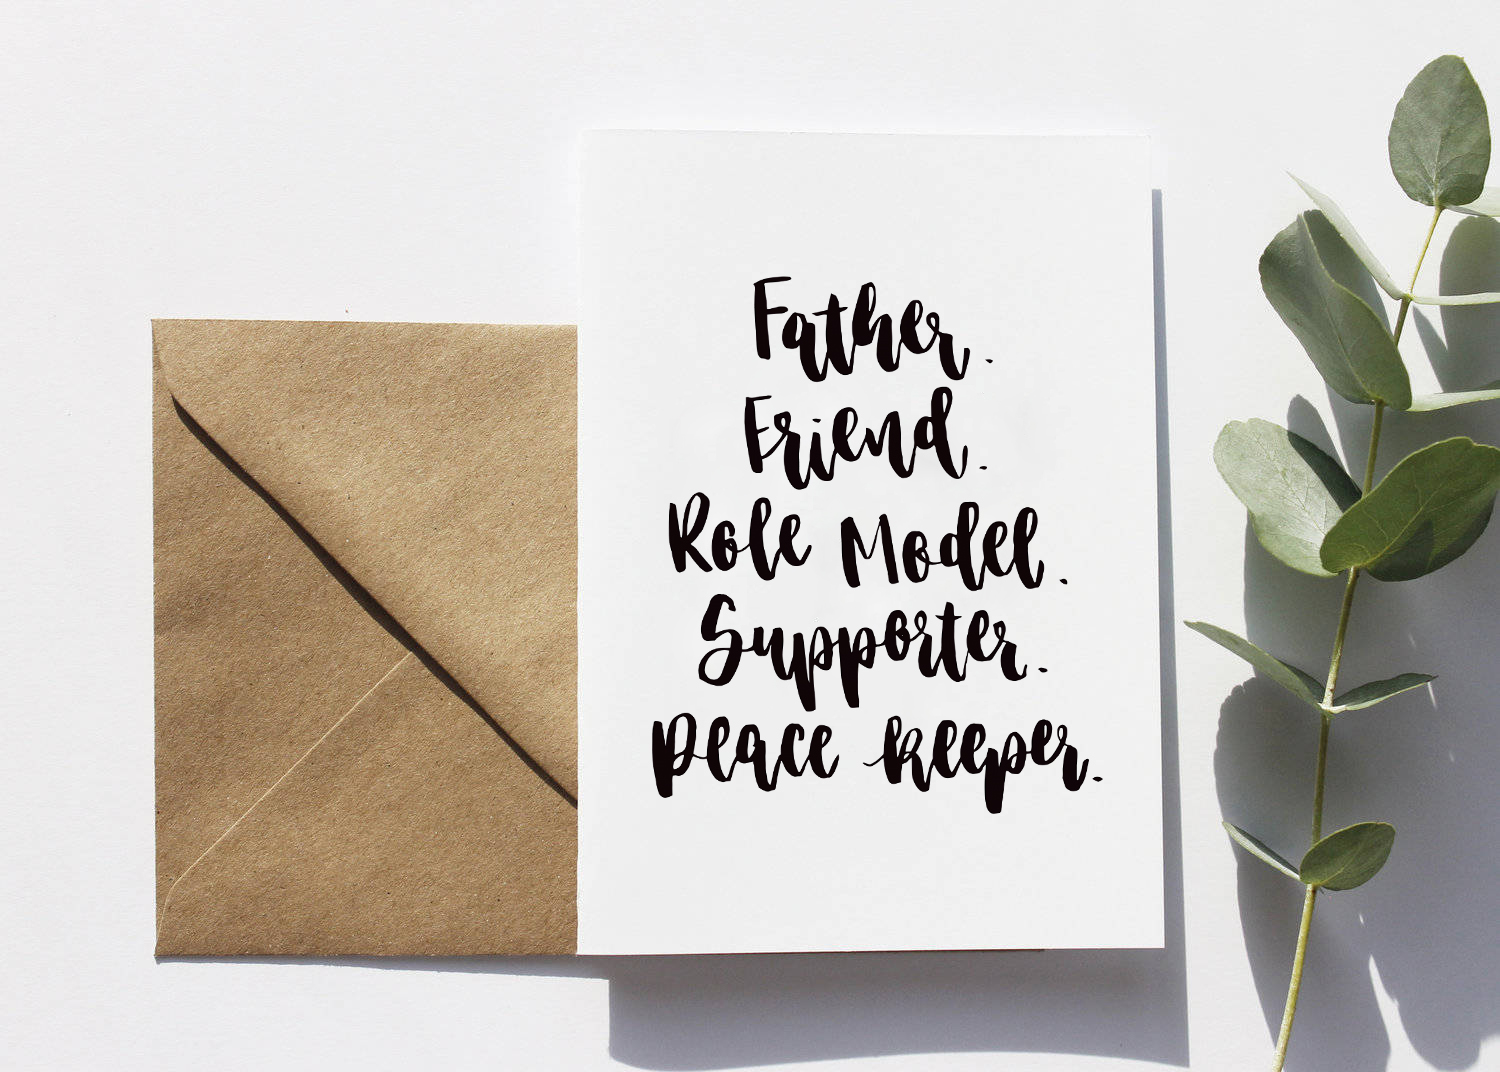 Father.
Friend.
Role Model.
Supporter.
Peace keeper.